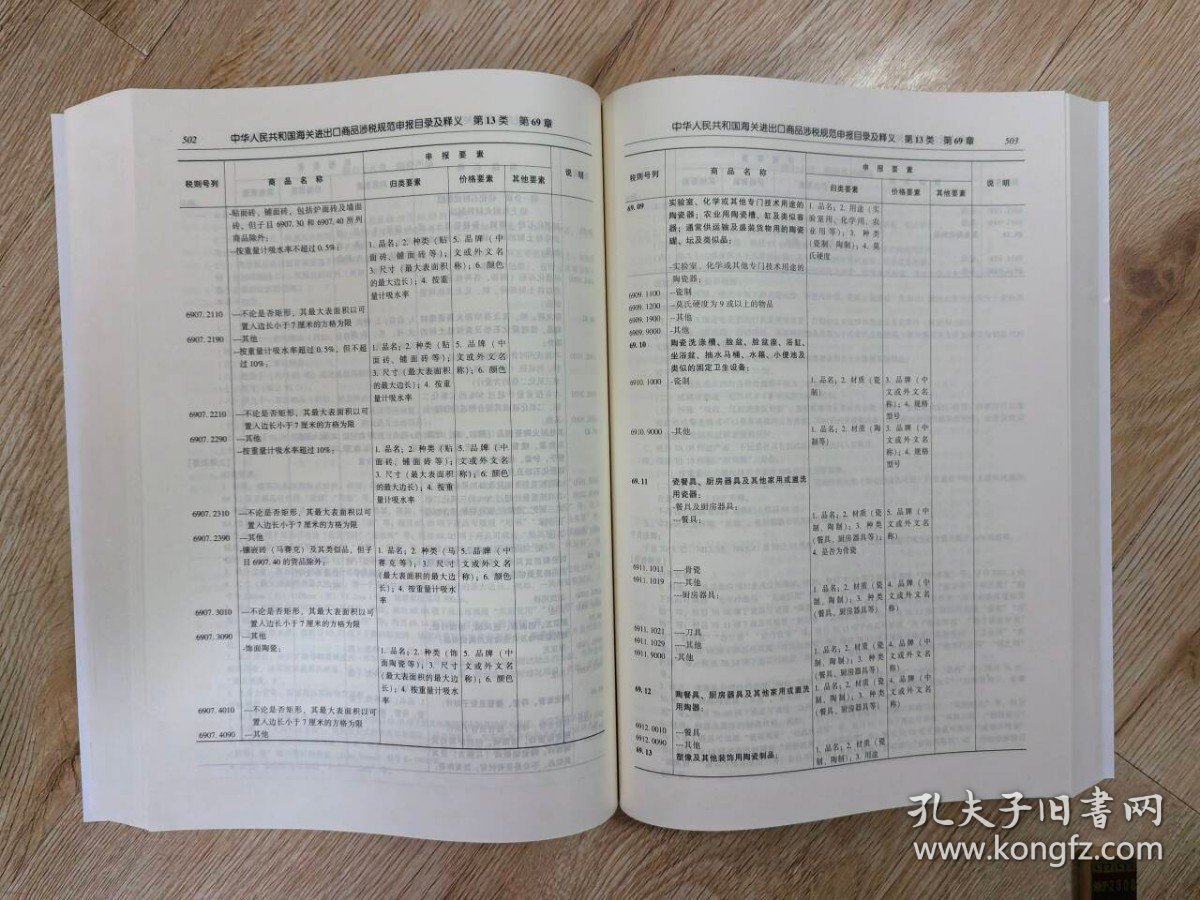 502 中华人民共和国海关进出口商品涉税规范申报目录及释义 第13类 第69章
税则号列 商品名称 申报要素 说明
归类要素 价格要素 其他要素
-贴面砖、铺面砖，包括炉面砖及墙面
砖，但子目6907.30和6907.40所列
商品除外：
--按重量计吸水率不超过0.5%： 1.品名；2.种类（贴 5.品牌（中
面砖、铺面砖等）； 文或外文名
3.尺寸（最大表面积 称）；6.颜色
的最大边长）；4.按重
量计吸水率
6907.2110 ---不论是否矩形，其最大表面积以可
置入边长小于7厘米的方格为限
6907.2190 ---其他
--按重量计吸水率超过0.5%，但不超 1.品名；2.种类（贴 5.品牌（中
过10%： 面砖、铺面砖等）； 文或外文名
3.尺寸（最大表面积 称）；6.颜色
的最大边长）；4.按重
量计吸水率
6907.2210 ---不论是否矩形，其最大表面积以可
置入边长小于7厘米的方格为限
6907.2290 ---其他
--按重量计吸水率超过10%： 1.品名；2.种类（贴 5.品牌（中
面砖、铺面砖等）； 文或外文名
3.尺寸（最大表面积 称）；6.颜色
的最大边长）；4.按重
量计吸水率
6907.2310 ---不论是否矩形，其最大表面积以可
置入边长小于7厘米的方格为限
6907.2390 ---其他
-镶嵌砖（马赛克）及其类似品，但子 1.品名；2.种类（马 5.品牌（中
目6907.40的货品除外： 赛克等）；3.尺寸 文或外文名
（最大表面积的最大边 称）；6.颜色
长）；4.按重量计吸水
率
6907.3010 ---不论是否矩形，其最大表面积以可
置入边长小于7厘米的方格为限
6907.3090 ---其他
-饰面陶瓷： 1.品名；2.种类（饰 5.品牌（中
面陶瓷等）；3.尺寸 文或外文名
（最大表面积的最大边 称）；6.颜色
长）；4.按重量计吸水
率
6907.4010 ---不论是否矩形，其最大表面积以可
置入边长小于7厘米的方格为限
6907.4090 ---其他
中华人民共和国海关进出口商品涉税规范申报目录及释义 第13类 第69章 503
税则号列 商品名称 申报要素 说明
归类要素 价格要素 其他要素
69.09 实验室、化学或其他专门技术用途的 1.品名；2.用途（实
陶瓷器；农业用陶瓷槽、缸及类似容 验室用、化学用、农
器；通常供运输及盛装货物用的陶瓷 业用等）；3.种类
罐、坛及类似品： （瓷制、陶制）；4.莫
氏硬度
-实验室、化学或其他专门技术用途的
陶瓷器：
6909.1100 --瓷制
6909.1200 --莫氏硬度为9或以上的物品
6909.1900 --其他
6909.9000 -其他
69.10 陶瓷洗涤槽、脸盆、脸盆座、浴缸、
坐浴盆、抽水马桶、水箱、小便池及
类似的固定卫生设备：
6910.1000 -瓷制 1.品名；2.材质（瓷 3.品牌（中
制） 文或外文名
称）；4.规格
型号
6910.9000 -其他 1.品名；2.材质（陶 3.品牌（中
制等） 文或外文名
称）；4.规格
型号
69.11 瓷餐具、厨房器具及其他家用或盥洗
用瓷器：
-餐具及厨房器具：
---餐具： 1.品名；2.材质（瓷 5.品牌（中
制、陶制）；3.种类 文或外文名
（餐具、厨房器具等）； 称）
4.是否为骨瓷
6911.1011 ----骨瓷
6911.1019 ----其他
---厨房器具： 1.品名；2.材质（瓷 4.品牌（中
制、陶制）；3.种类 文或外文名
（餐具、厨房器具等） 称）
6911.1021 ----刀具
6911.1029 ----其他
6911.9000 -其他 1.品名；2.材质（瓷 4.品牌（中
制、陶制）；3.种类 文或外文名
（餐具、厨房器具等） 称）
69.12 陶餐具、厨房器具及其他家用或盥洗 1.品名；2.材质（瓷 4.品牌（中
用陶器： 制、陶制）；3.种类 文或外文名
（餐具、厨房器具等） 称）
6912.0010 ---餐具
6912.0090 ---其他
69.13 塑像及其他装饰用陶瓷制品： 1.品名；2.材质（瓷
制、陶制）；3.用途
孔夫子旧书网
www.kongfz.com